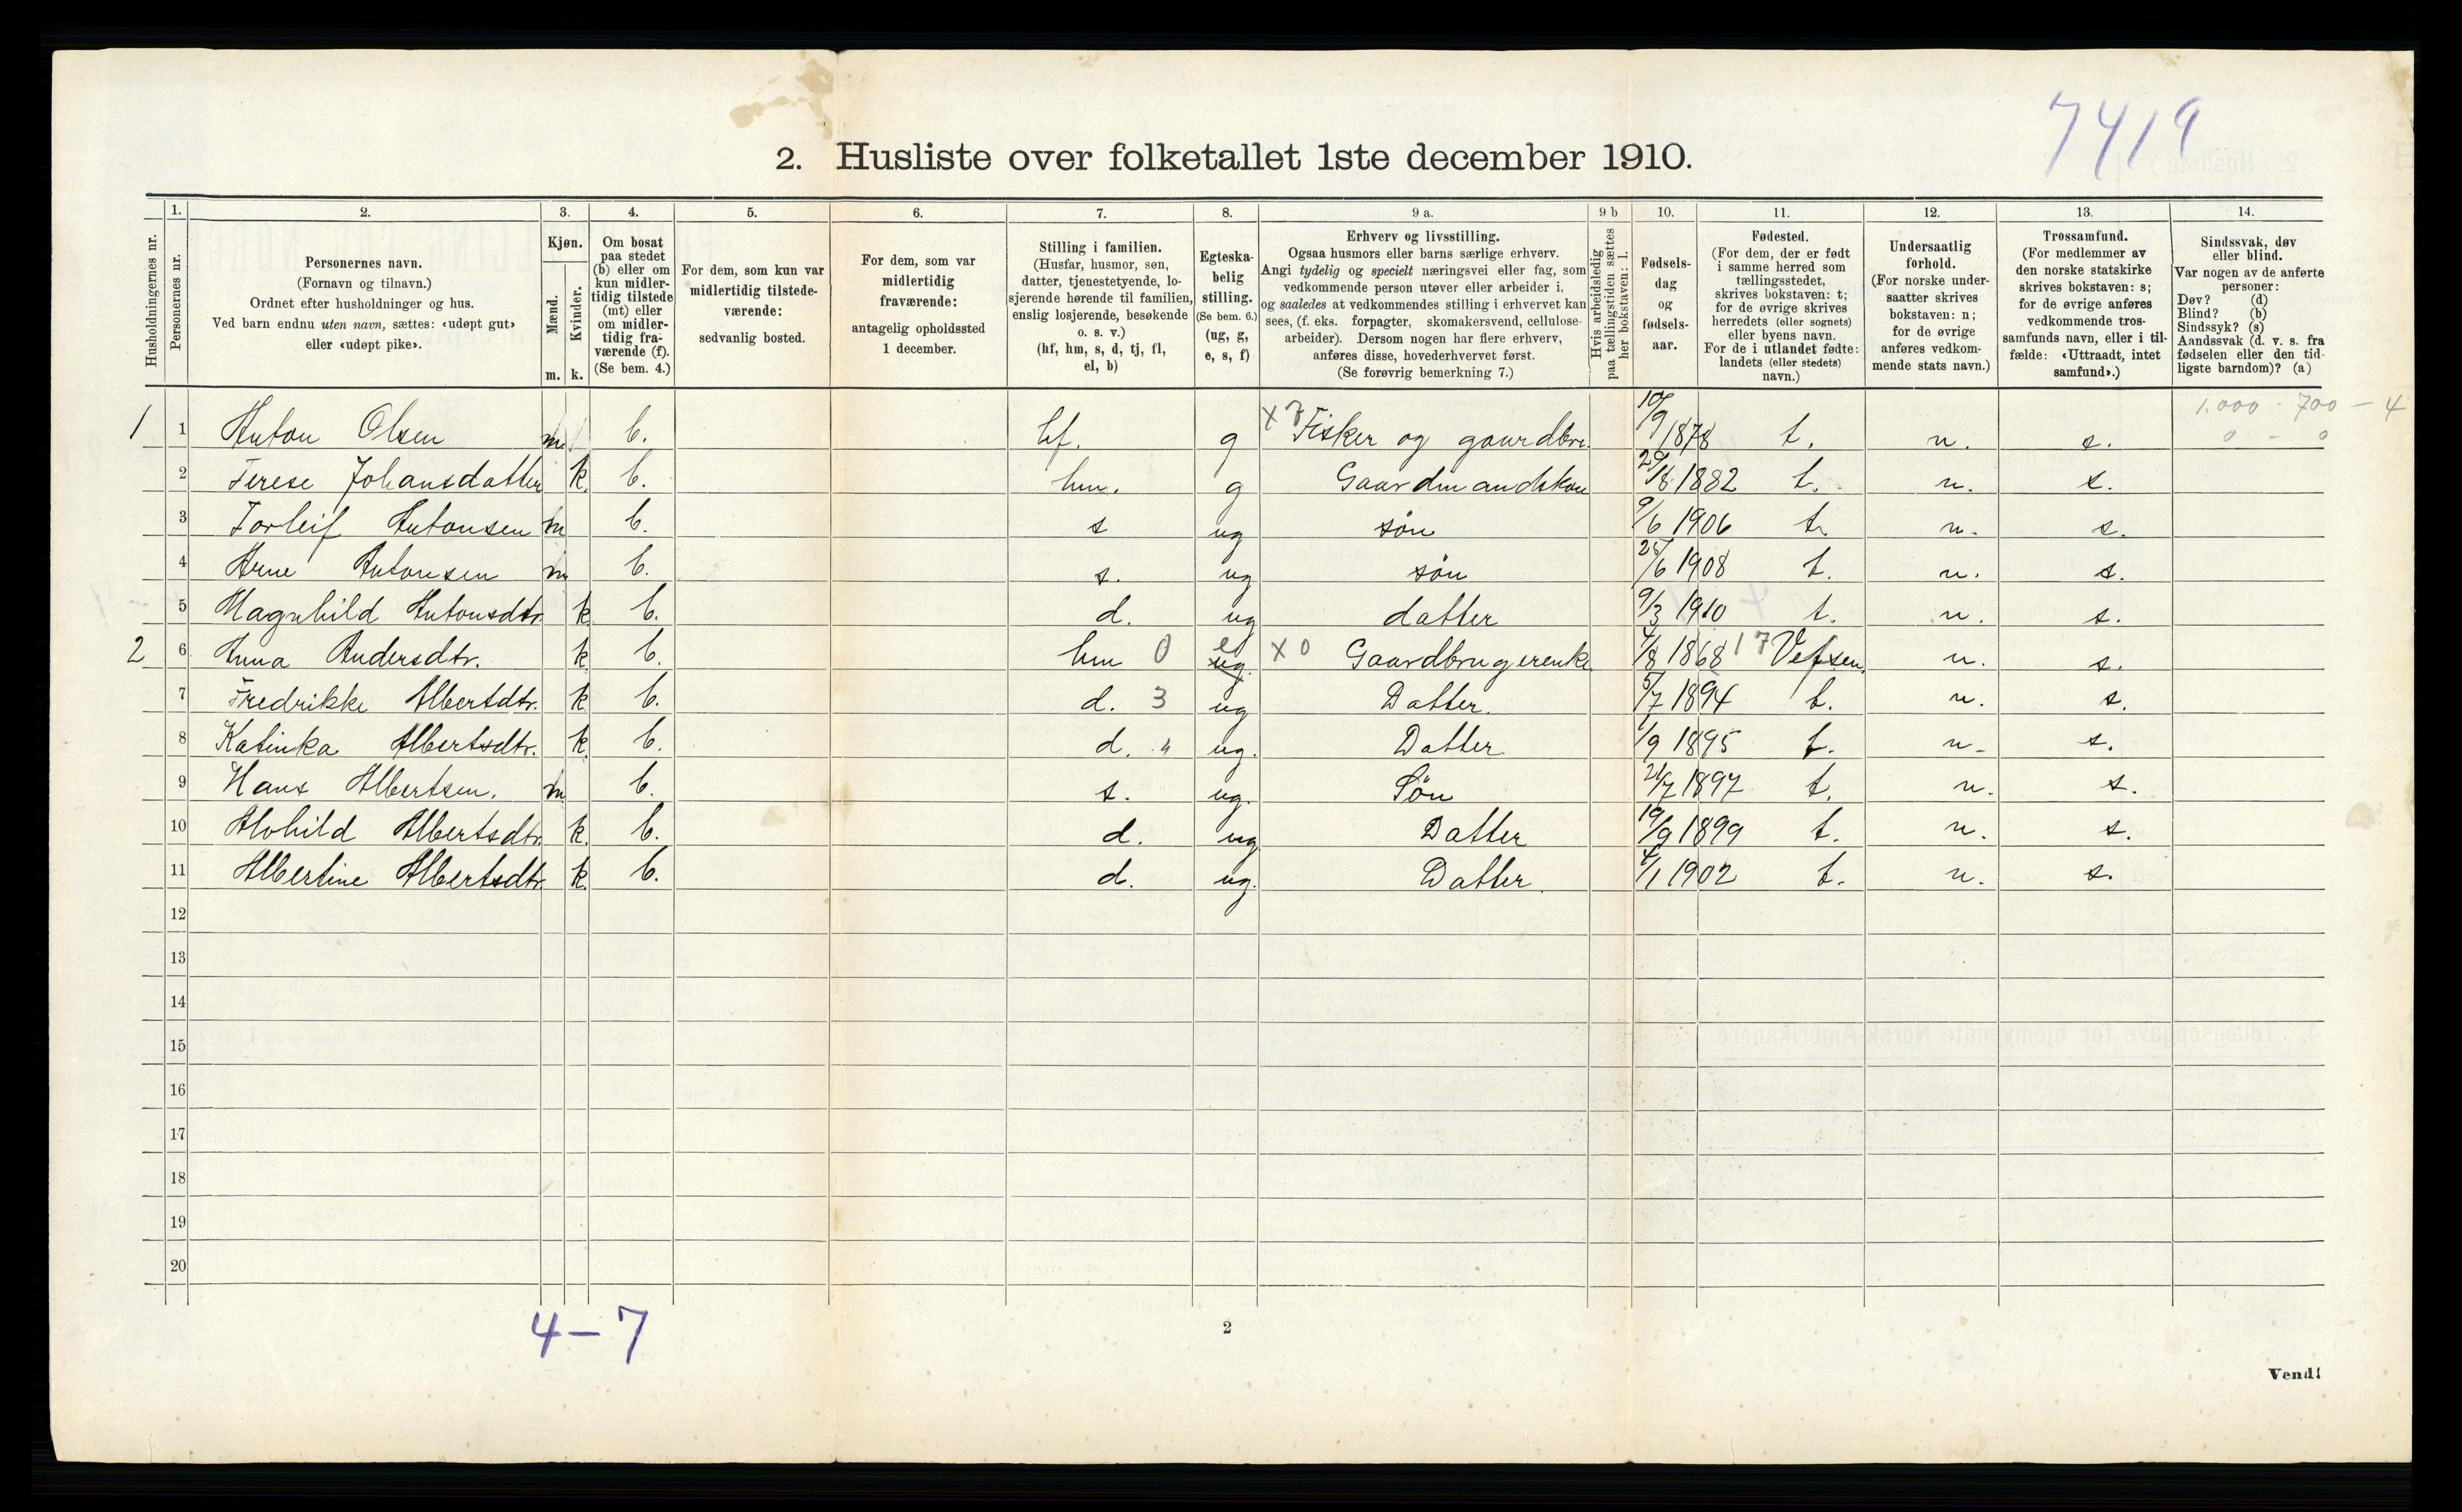 7419
2. Husliste over folketallet 1ste december 1910.
Husholdningernes nr.
1. Personernes nr.
2. Personernes navn.
(Fornavn og tilnavn.)
Ordnet efter husholdninger og hus.
Ved barn endnu uten navn, sættes: «udøpt gut»
eller «udøpt pike».
3. Kjøn.
Mænd. Kvinder.
m. k.
4. Om bosat
paa stedet
(b) eller om
kun midler-
tidig tilstede
(mt) eller
om midler-
tidig fra-
værende (f).
(Se bem. 4.)
5. For dem, som kun var
midlertidig tilstede-
værende:
sedvanlig bosted.
6. For dem, som var
midlertidig
fraværende:
antagelig opholdssted
1 december.
7. Stilling i familien.
(Husfar, husmor, søn,
datter, tjenestetyende, lo-
sjerende hørende til familien,
enslig losjerende, besøkende
o. s. v.)
(hf, hm, s, d, tj, fl,
el, b)
8. Egteska-
belig
stilling.
(Se bem. 6.)
(ug, g,
e, s, f)
9 a. Erhverv og livsstilling.
Ogsaa husmors eller barns særlige erhverv.
Angi tydelig og specielt næringsvei eller fag, som
vedkommende person utøver eller arbeider i,
og saaledes at vedkommendes stilling i erhvervet kan
sees, (f. eks. forpagter, skomakersvend, cellulose-
arbeider). Dersom nogen har flere erhverv,
anføres disse, hovederhvervet først.
(Se forøvrig bemerkning 7.)
9 b Hvis arbeidsledig
paa tællingstiden sættes
her bokstaven: l.
10. Fødsels-
dag
og
fødsels-
aar.
11. Fødested.
(For dem, der er født
i samme herred som
tællingsstedet,
skrives bokstaven: t;
for de øvrige skrives
herredets (eller sognets)
eller byens navn.
For de i utlandet fødte:
landets (eller stedets)
navn.)
12. Undersaatlig
forhold.
(For norske under-
saatter skrives
bokstaven: n;
for de øvrige
anføres vedkom-
mende stats navn.)
13. Trossamfund.
(For medlemmer av
den norske statskirke
skrives bokstaven: s;
for de øvrige anføres
vedkommende tros-
samfunds navn, eller i til-
fælde: «Uttraadt, intet
samfund».)
14. Sindssvak, døv
eller blind.
Var nogen av de anførte
personer:
Døv? (d)
Blind? (b)
Sindssyk? (s)
Aandssvak (d. v. s. fra
fødselen eller den tid-
ligste barndom)? (a)
1.000 - 700 - 4
0 - 0
1 1 Anton Olsen m b. hf. g x 7 Fisker og gaardbr. 10/9 1878 t. n. s.
2 Terese Johansdatter k. b. hm. g Gaardmandskone 29/8 1882 t. n. s.
3 Torleif Antonsen m b. s ug søn 9/6 1906 t. n. s.
4 Arne Antonsen m b. s. ug søn 25/6 1908 t. n. s.
5 Magnhild Antonsdtr. k b. d. ug datter 9/3 1910 t. n. s.
2 6 Anna Andersdtr. k b. hm 0 e ug. x 0 Gaardbrugerenke 4/8 1868 17 Vefsen. n. s.
7 Fredrikke Albertdtr. k b. d. 3 ug Datter. 5/7 1894 t. n. s.
8 Katinka Albertsdtr. k b. d. " ug. Datter 1/9 1895 t. n. s.
9 Hans Albertsen. m b. s. ug. Søn 21/7 1897 t. n. s.
10 Alvhild Albertsdtr. k. b. d. ug Datter 19/9 1899 t. n. s.
11 Albertine Albertsdtr. k. b. d. ug. Datter. 4/1 1902 t. n. s.
12
13
14
15
16
17
18
19
20
4 - 7
2
Vend!